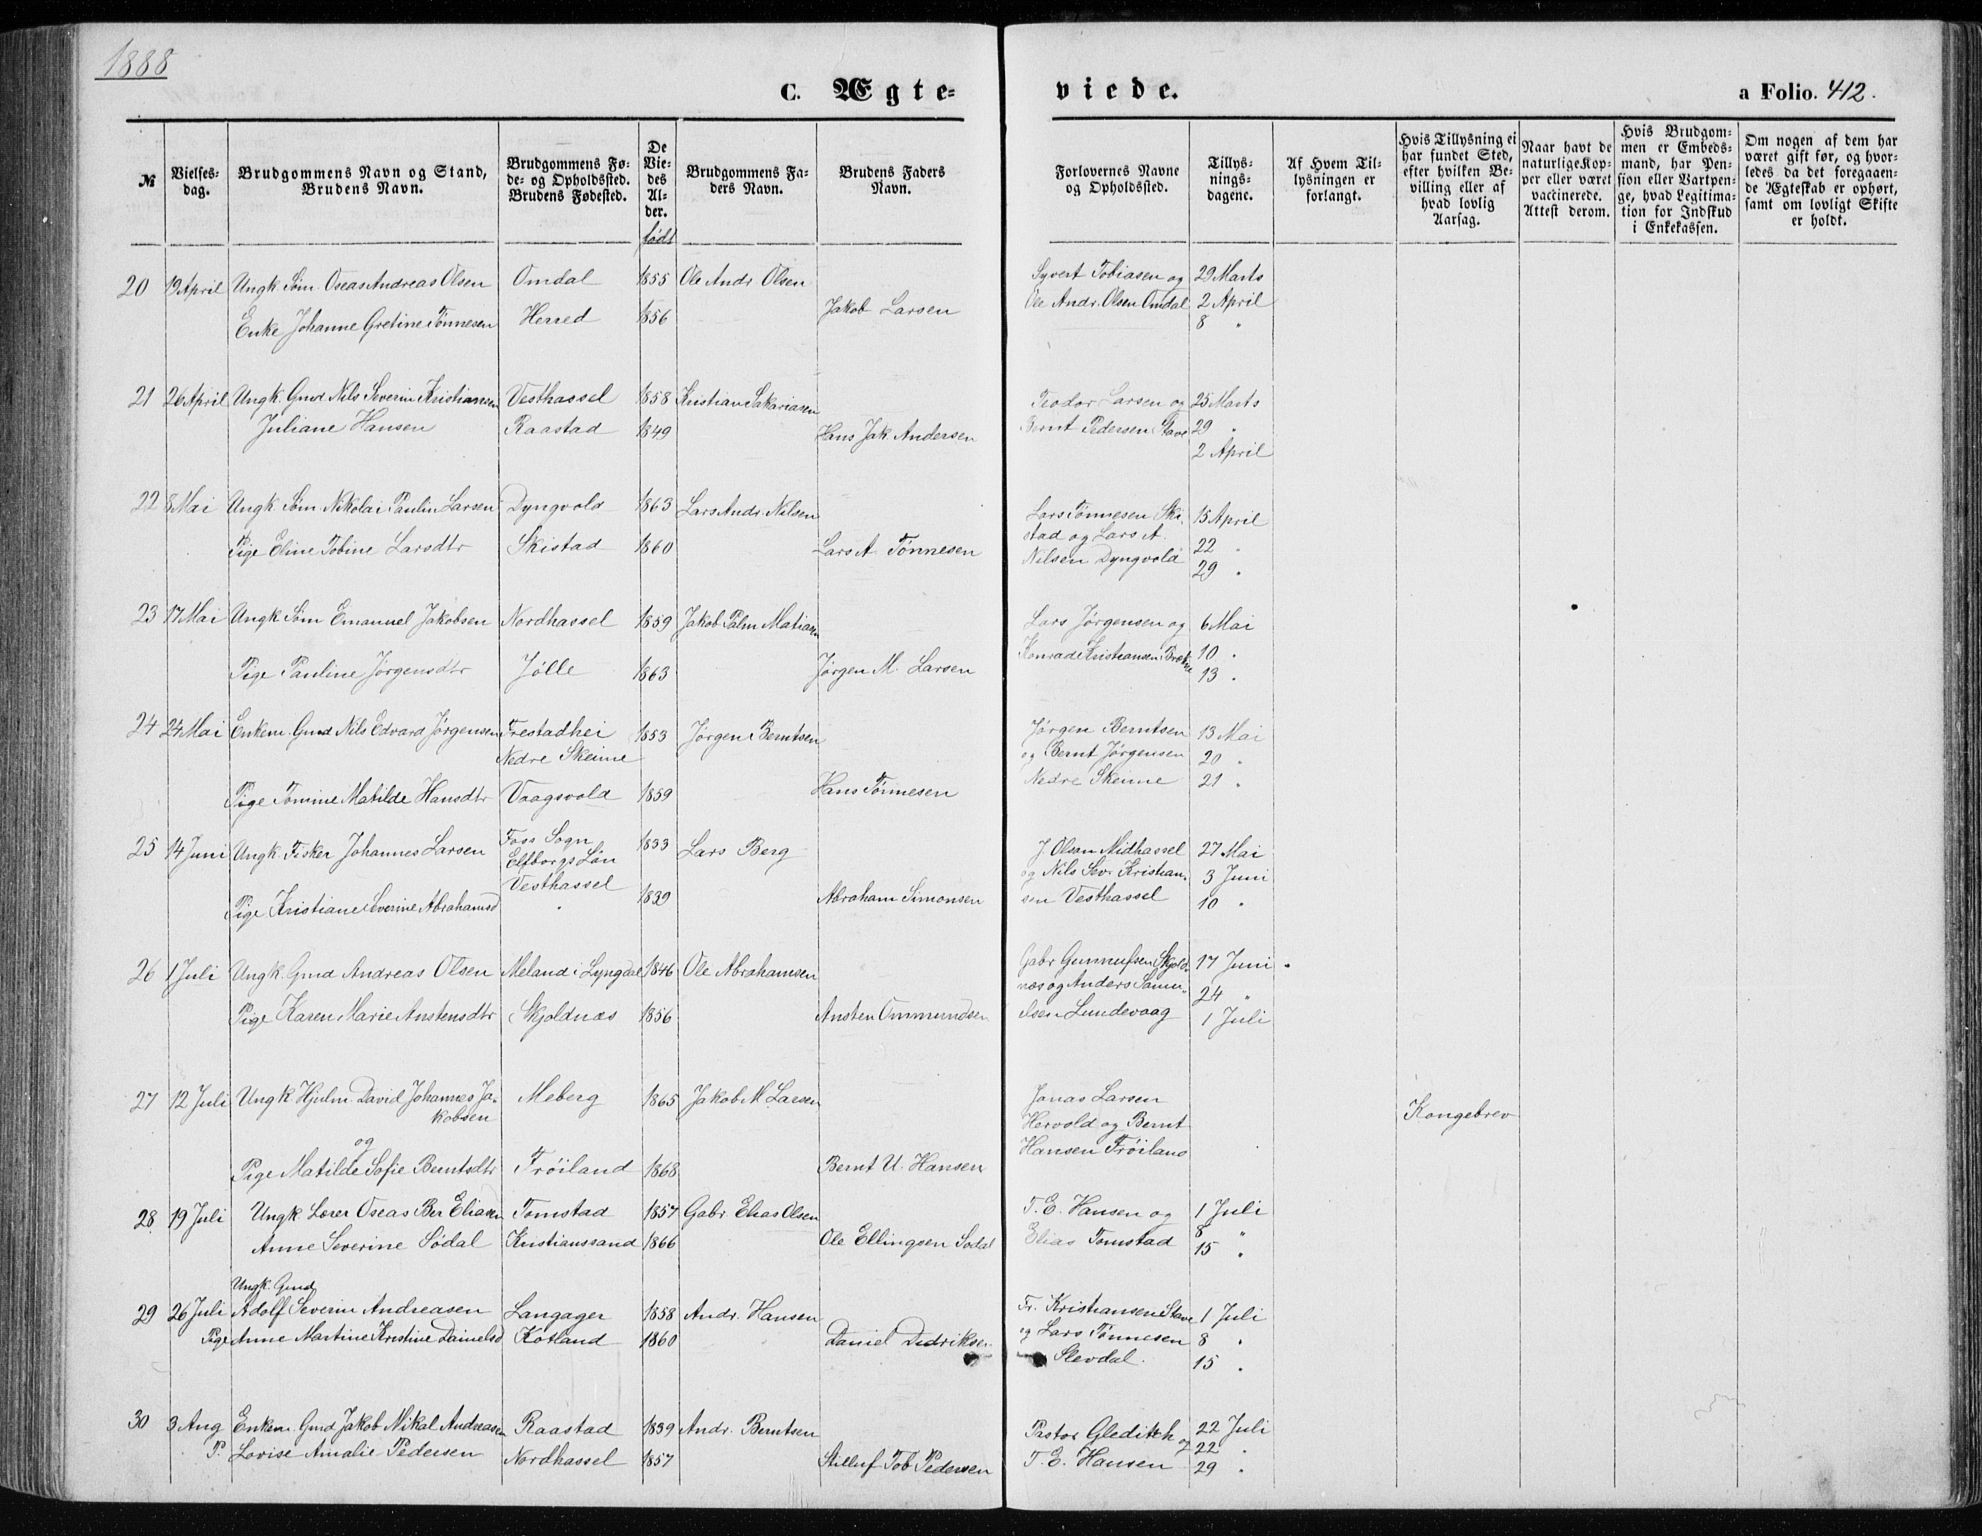 1888
C. Ægte-
viede.
a Folio. 412.
№
Vielses-
dag.
Brudgommens Navn og Stand,
Brudens Navn.
Brudgommens Fø-
de- og Opholdssted.
Brudens Fødested.
De
Vie-
des
Al-
der.
født
Brudgommens Fa-
ders Navn.
Brudens Faders
Navn.
Forlovernes Navne
og Opholdssted.
Tillys-
nings-
dagene.
Af Hvem Til-
lysningen er
forlangt.
Hvis Tillysning ei
har fundet Sted,
efter hvilken Be-
villing eller af
hvad lovlig
Aarsag.
Naar havt de
naturlige Kop-
per eller været
vaccinerede.
Attest derom.
Hvis Brudgom-
men er Embeds-
mand, har Pen-
sion eller Vartpen-
ge, hvad Legitima-
tion for Indskud
i Enkekassen.
Om nogen af dem har
været gift før, og hvor-
ledes da det foregaaen-
de Ægteskab er ophørt,
samt om lovligt Skifte
er holdt.
20 19 April Ungk. Søm. Oseas Andreas Olsen Omdal 1855 Ole Andr. Olsen Syvert Tobiasen og 29 Marts
Enke Johanne Gretine Tønnesen Herred 1856 Jakob Larsen Ole Andr. Olsen Omdal 2 April
8 "
21 26 April Ungk. Gmd Nils Severin Kristiansen Vesthassel 1858 Kristian Sakariasen Teodor Larsen og 25 Marts
Juliane Hansen Raastad 1849 Hans Jak. Andersen Bernt Pedersen Stave 29 "
2 April
22 8 Mai Ungk. Søm. Nikolai Paulin Larsen Dyngvold 1863 Lars Andr. Nilsen Lars Tønnesen Ski- 15 April
Pige Eline Tobine Larsdtr Skistad 1860 Lars A. Tønnesen stad og Lars A. 22 "
Nilsen Dyngvold 29 "
23 17 Mai Ungk Søm Emanuel Jakobsen Nordhassel 1859 Jakob Palm Matiasen Lars Jørgensen og 6 Mai
Pige Pauline Jørgensdtr Jølle 1863 Jørgen M. Larsen Konrad Kristiansen Brekne 10 "
13 "
24 24 Mai Enkem. Gmd Nils Edvard Jørgensen Frestadhei 1853 Jørgen Berntsen Jørgen Berntsen 13 Mai
Nedre Skeime og Bernt Jørgensen 20 "
Pige Tomine Matilde Hansdtr Vaagsvold 1859 Hans Tønnesen Nedre Skeime 21 "
25 14 Juni Ungk. Fisker Johannes Larsen Foss Sogn 1833 Lars Berg J. Olsen Midhassel 27 Mai
Elfborgs Län og Nils Sev. Kristian- 3 Juni
Vesthassel
Pige Kristiane Severine Abrahamsd " 1839 Abraham Simonsen sen Vesthassel 10 "
26 1 Juli Ungk. Gmd Andreas Olsen Meland i Lyngdal 1846 Ole Abrahamsen Gabr Gunnufsen Skjold- 17 Juni "
næs og Anders Samu- 24 "
Pige Karen Marie Anstensdtr Skjoldnæs 1856 Ansten Ommundsen elsen Lundevaag 1 Juli
27 12 Juli Ungk Hjulm. David Johannes Ja- Meberg 1865 Jakob M. Larsen Jonas Larsen Kongebrev
kobsen Hervold og Bernt
og Hansen Frøiland
Pige Matilde Sofie Berntsdtr Frøiland 1868 Bernt U. Hansen
28 19 Juli Ungk. Lærer Oseas Ber Eliasen Tomstad 1857 Gabr. Elias Olsen T. E. Hansen og 1 Juli
Anne Severine Sødal Kristianssand 1866 Ole Ellingsen Sødal Elias Tomstad 8 "
15 "
Ungk. Gmd
29 26 Juli Adolf Severin Andreasen Langager 1858 Andr. Hansen Fr. Kristiansen Stave 1 Juli
Pige Anne Martine Kristine Danielsd Køtland 1860 Daniel Didriksen og Lars Tønnesen 8 "
Slevdal. 15 "
30 3 Aug Enkem. Gmd Jakob Nikal Andreasen Raastad 1839 Andr. Berntsen Pastor Gleditch og 22 Juli
P. Lovise Amalie Pedersen Nordhassel 1857 Stilluf Tob Pedersen T. E. Hansen 22 "
29 "